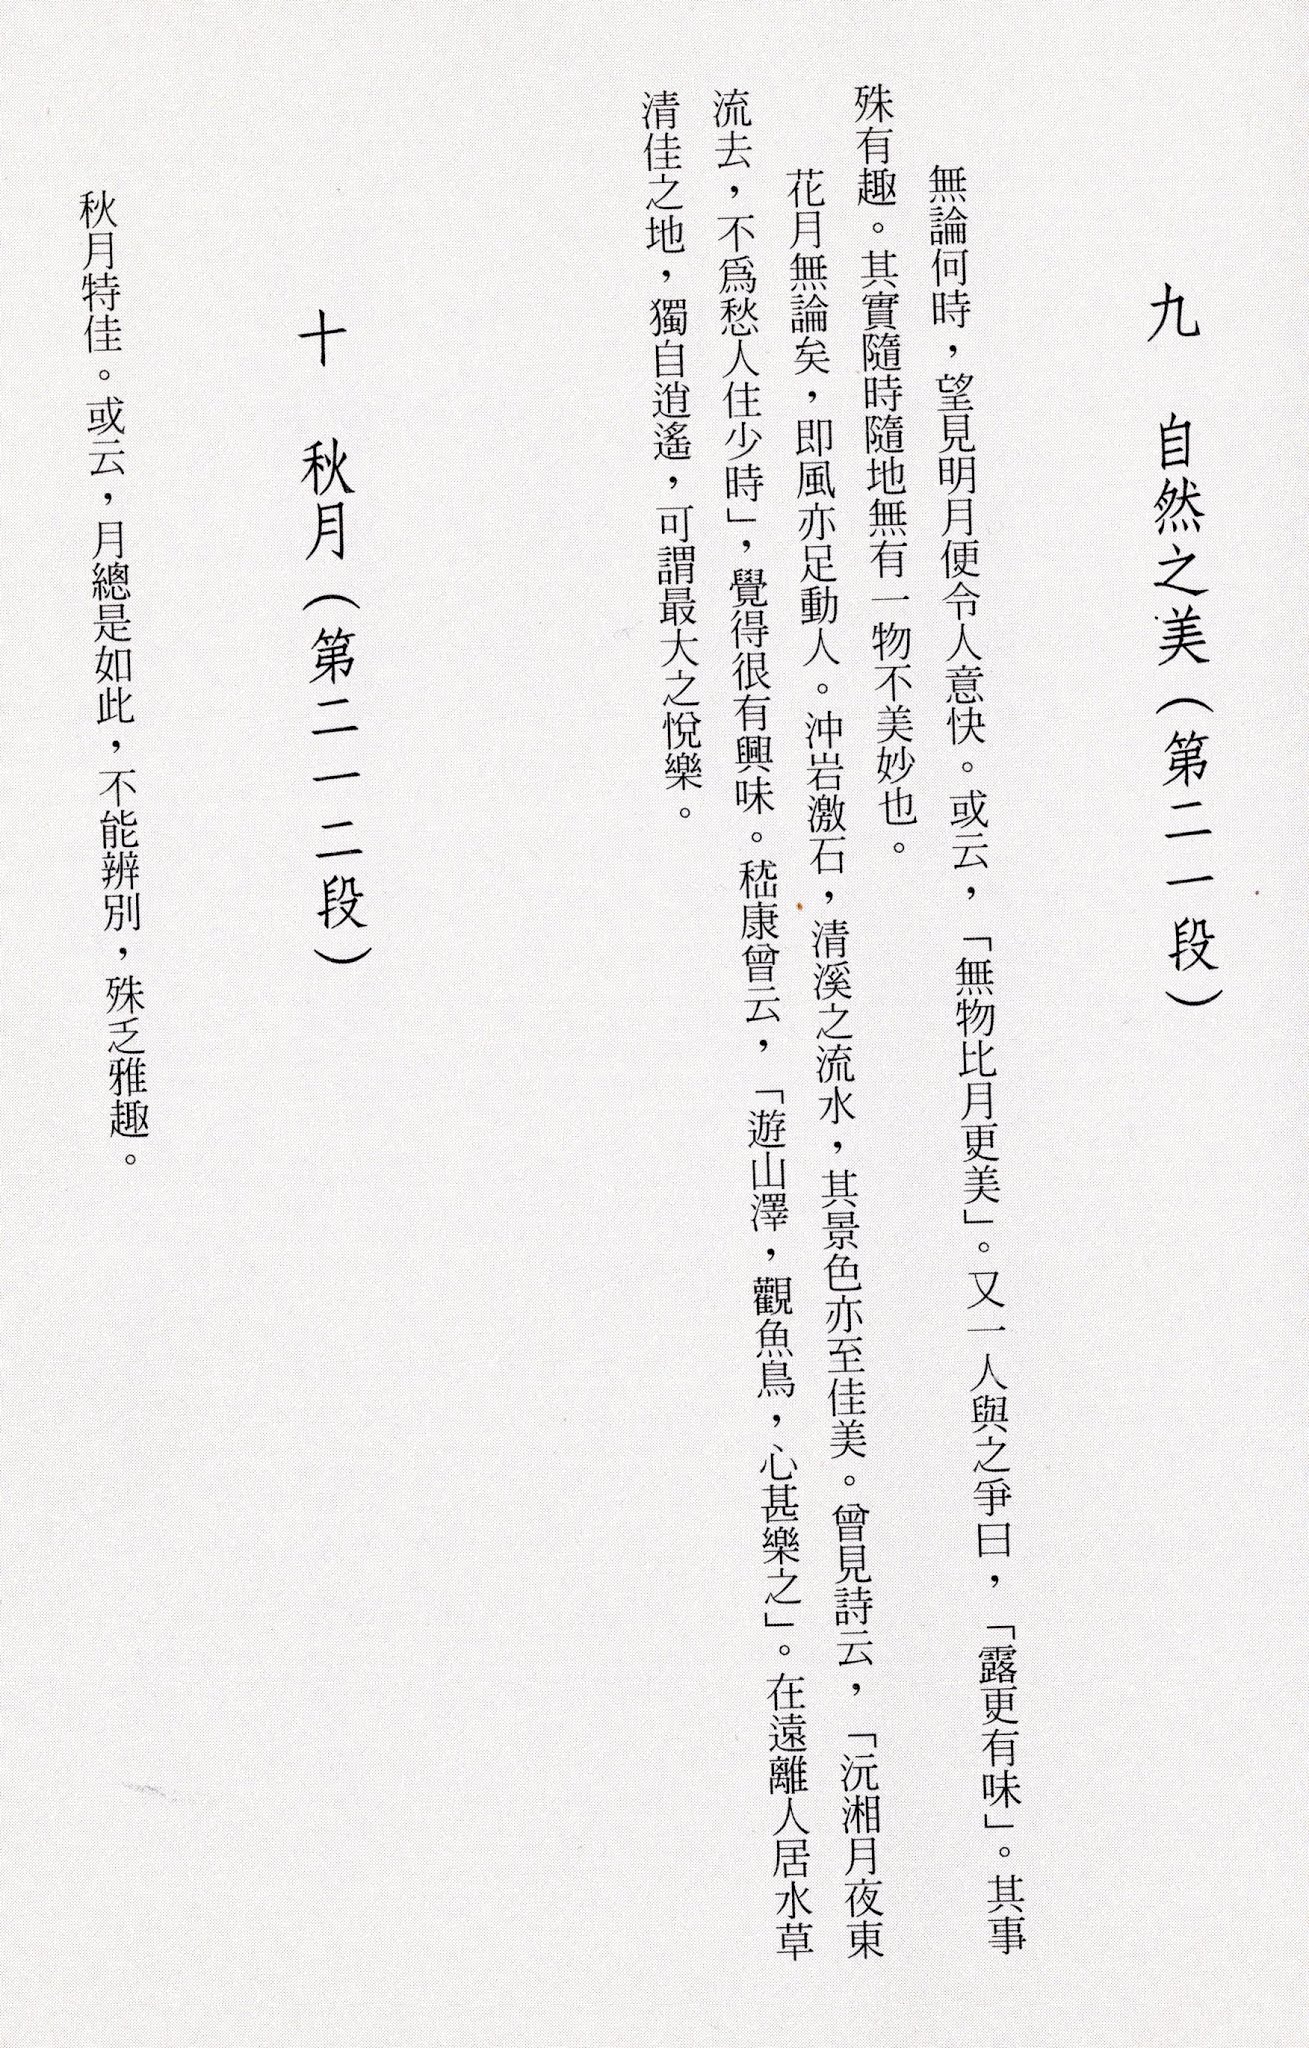 九　自然之美（第二一段）
無論何時，望見明月便令人意快。或云，「無物比月更美」。又一人與之爭曰，「露更有味」。其事
殊有趣。其實隨時隨地無有一物不美妙也。
花月無論矣，即風亦足動人。沖岩激石，清溪之流水，其景色亦至佳美。曾見詩云，「沅湘月夜東
流去，不爲愁人住少時」，覺得很有興味。嵇康曾云，「遊山澤，觀魚鳥，心甚樂之」。在遠離人居水草
清佳之地，獨自逍遙，可謂最大之悅樂。
十　秋月（第二一二段）
秋月特佳。或云，月總是如此，不能辨別，殊乏雅趣。